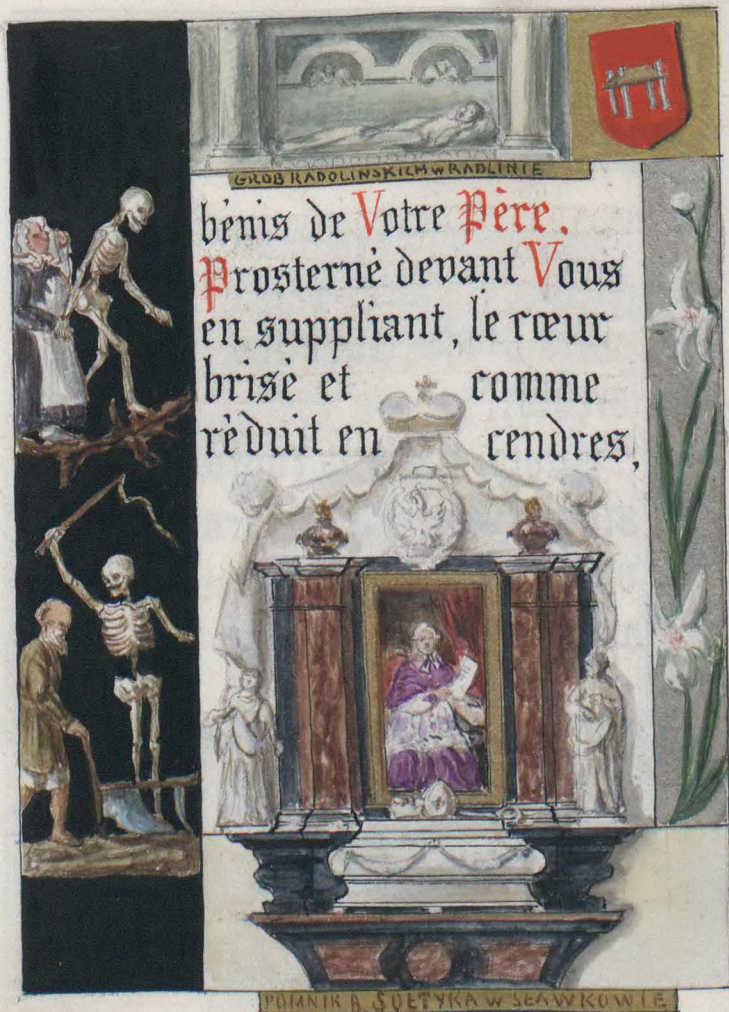 GROB RADOLINSKICH W RADLINIE
bénis de Votre Père.
Prosterné devant Vous
en suppliant, le cœur
brisé et comme
réduit en cendres,
POMNIK B. SOŁTYKA W SŁAWKOWIE